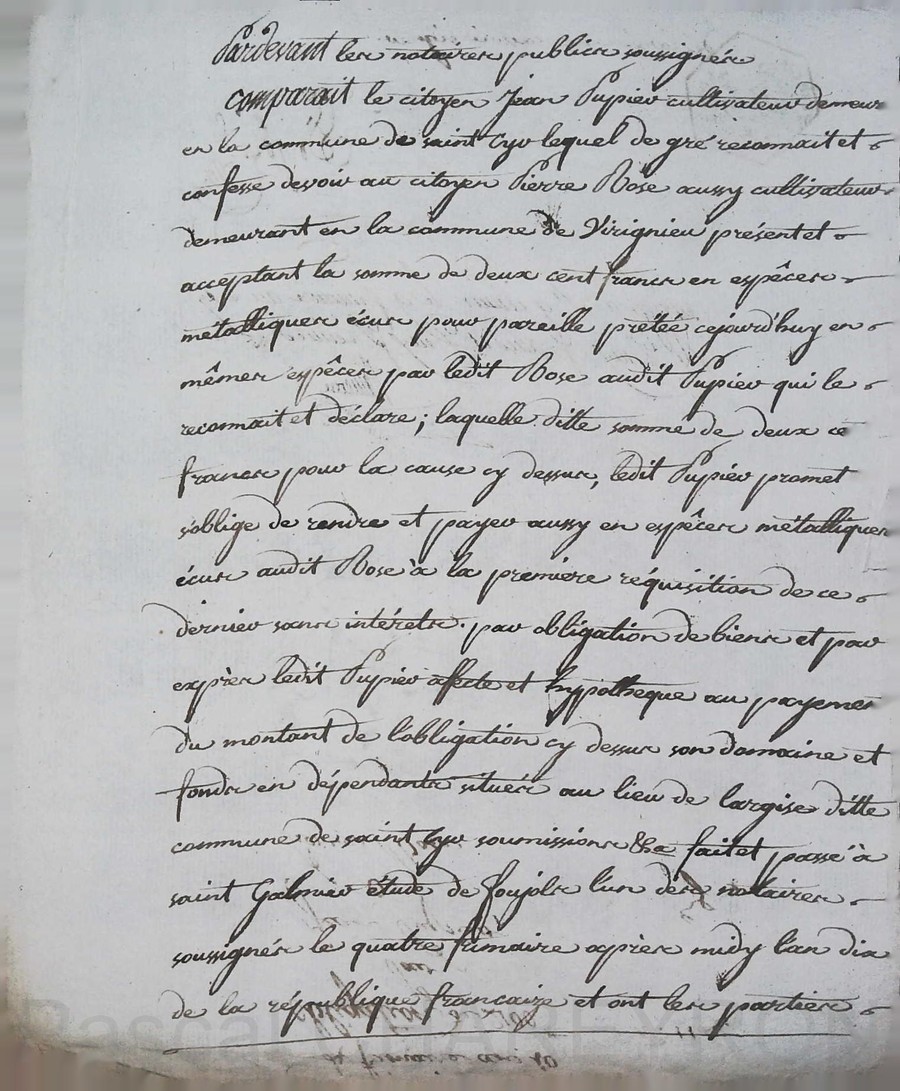 Pardevant les notaires publics soussignés
comparait le citoyen Jean Pupier cultivateur demeur
en la commune de saint Cyr lequel de gré reconnait et
confesse devoir au citoyen Pierre Bose aussy cultivateur
demeurant en la commune de Virignieu présent et
acceptant la somme de deux cent francs en espêces
métalliques écus pour pareille prétéé cejourd'huy en
mêmes espêces par ledit Bose audit Pupier qui le
reconnait et déclare; laquelle ditte somme de deux ce
francs pour la cause cy dessus, ledit Pupier promet
s'oblige de rendre et payer aussy en espêces métalliques
écus audit Bose à la premiere réquisition de ce
dernier sans intérets. par obligation de biens et par
exprès ledit Pupier affecte et hypotheque au payemen
du montant de l'obligation cy dessus son domaine et
fonds en dépendants situés au lieu de largise ditte
commune de saint Cyr soumissions &a fait et passé à
saint Galmier étude de foujols l'un des notaires
soussignés le quatre frimaire après midy l'an dix
de la république francaize et ont les parties